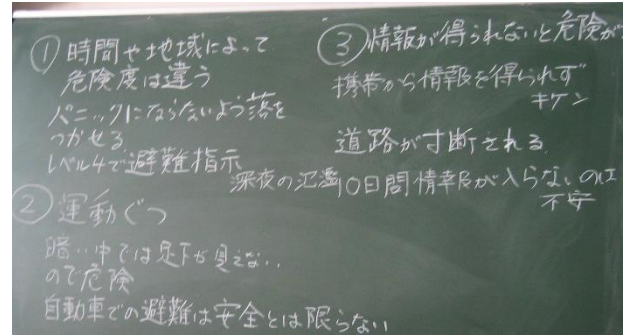 ① 時間や地域によって
危険度は違う
パニックにならないよう落を
つかせる
レベル4で避難指示
深夜の氾濫
② 運動ぐつ
暗い中では足下が見えない
ので危険
自動車での避難は安全とは限らない
③ 情報が得られないと危険が
携帯から情報を得られず
キケン
道路が寸断される
10日間情報が入らないのは
不安